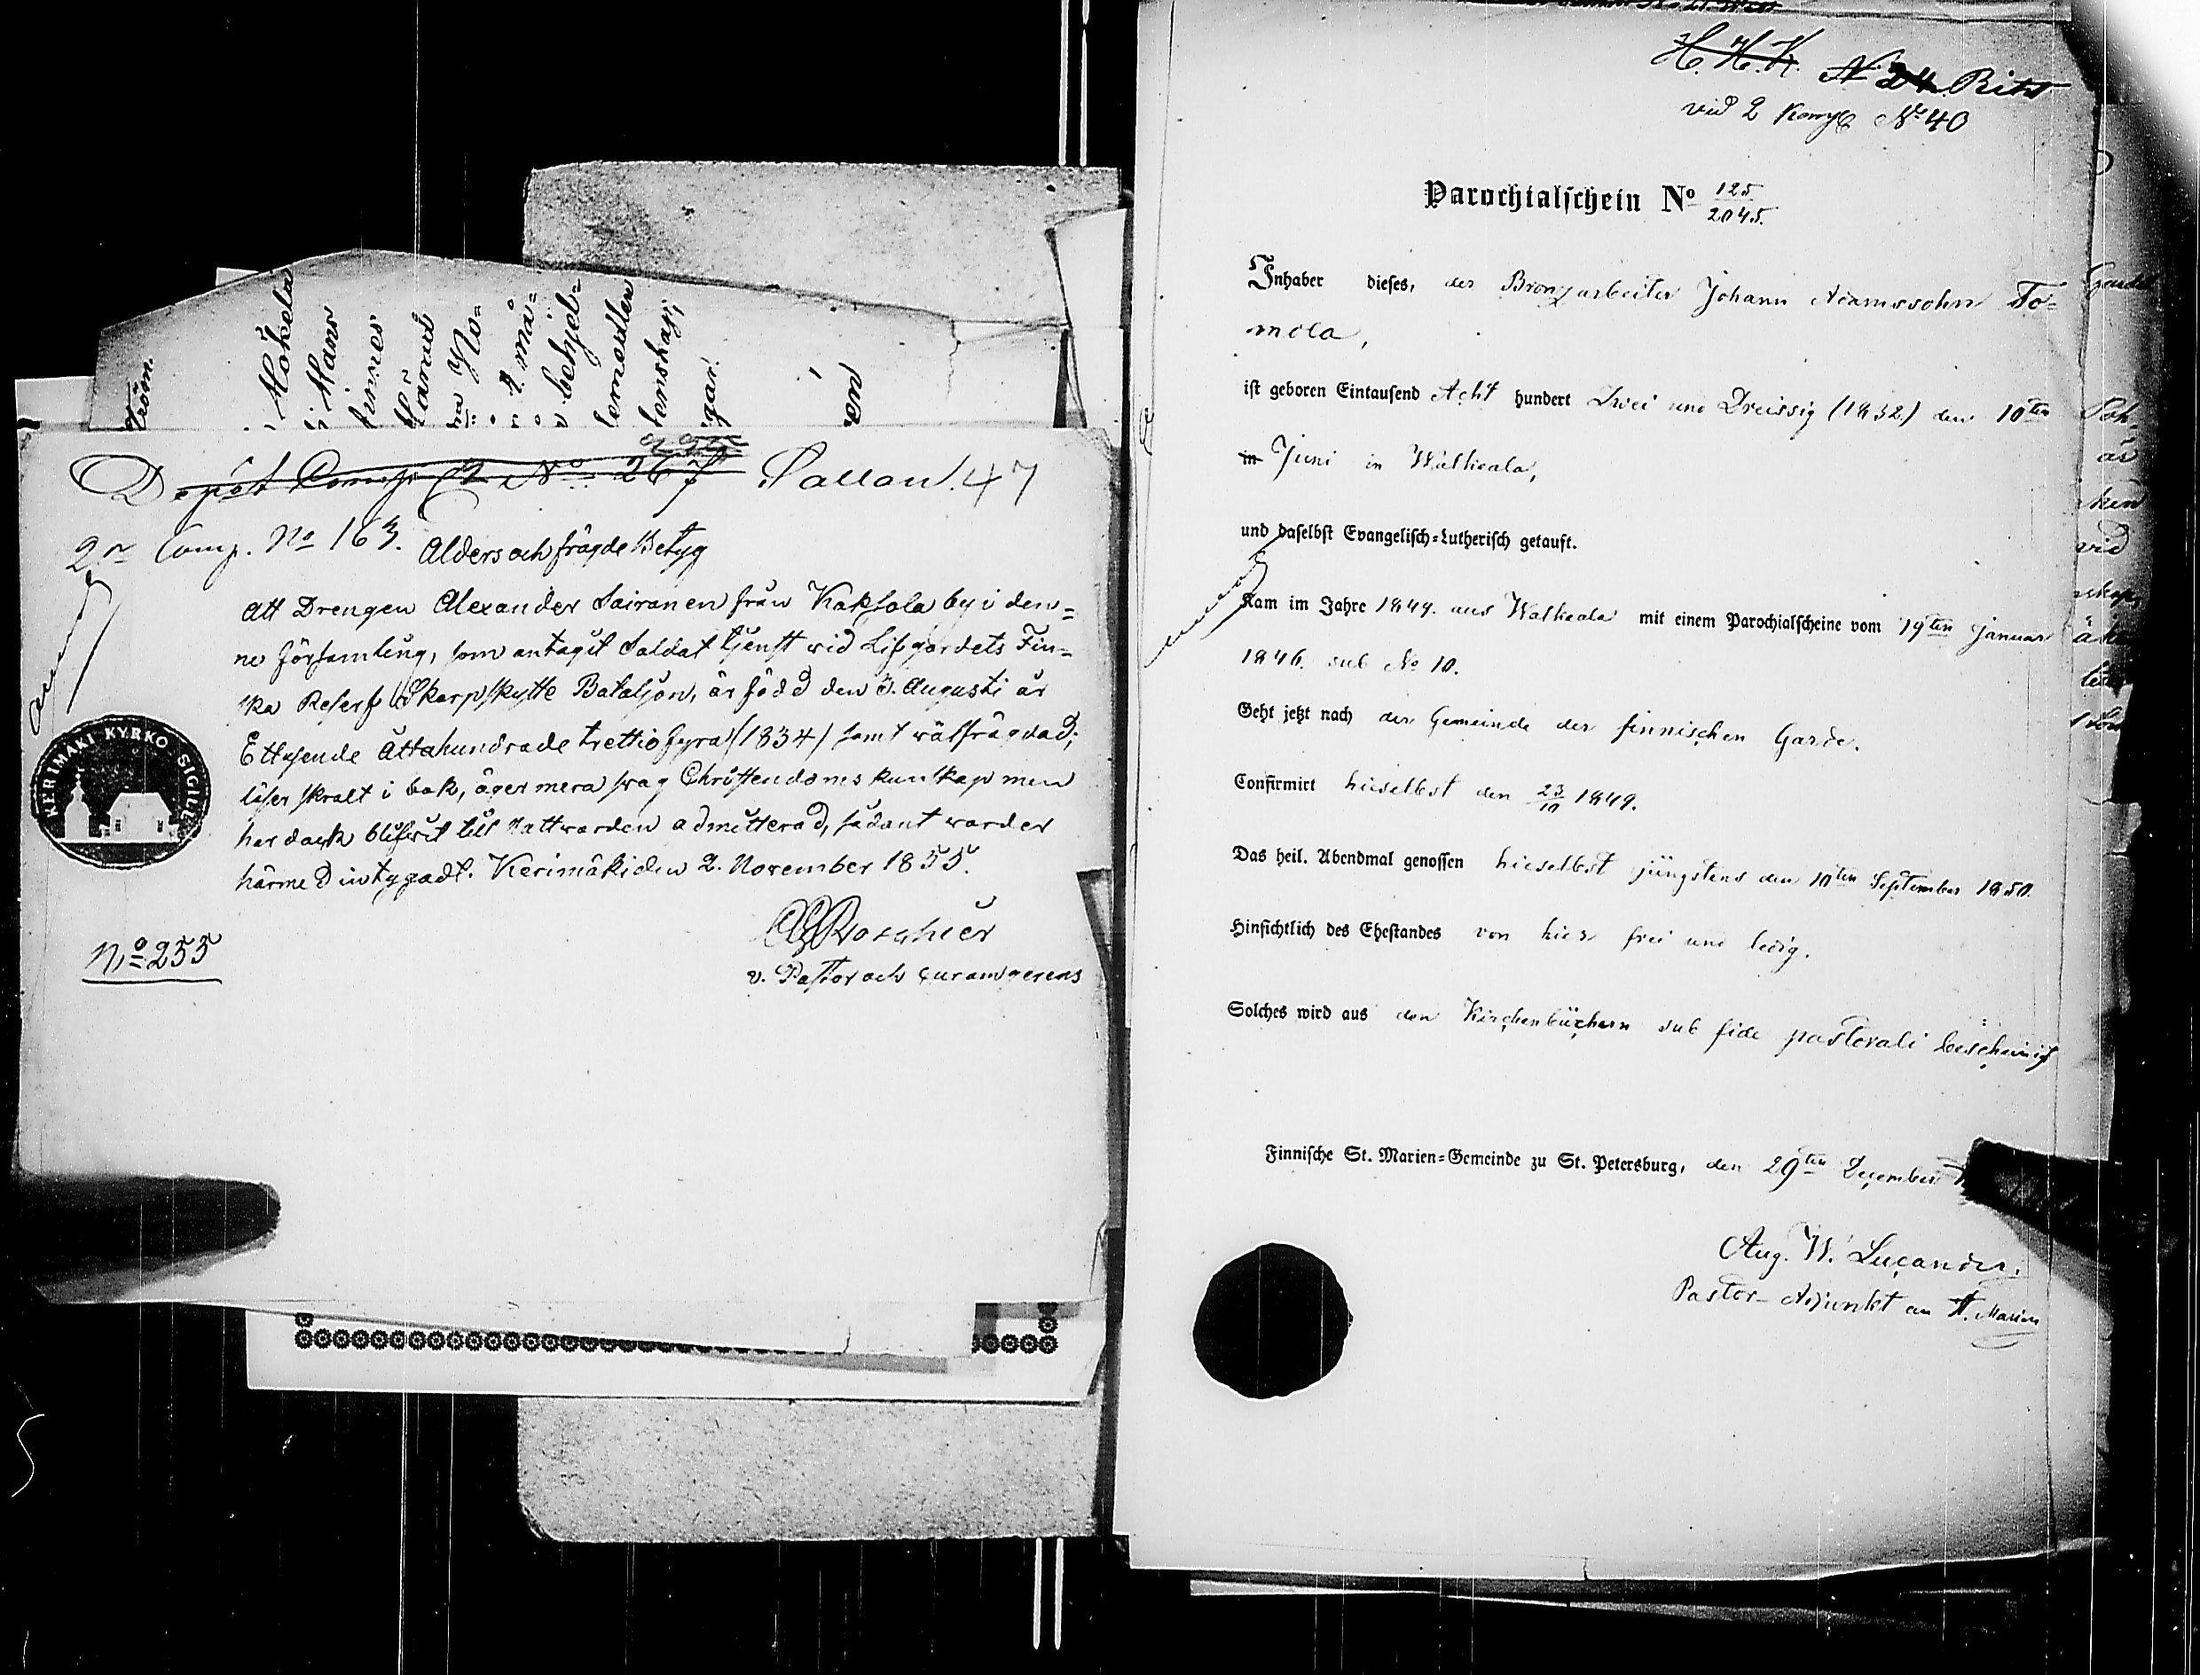 Ström.
Mökela
i Mans
finnes
Härmed
behjel=
Depôt Comp. № 267 Pallon. 47
2ra Comp. No 163.
Alders och frägde Betyg
KERIMÄKI KYRKO SIGILL
Att Drengen Alexander Sairanen från Kaksola by i den=
ne församling, som antagit Soldat tjenst vid Lifgardets Fin=
ska Reserf Skarpskytte Bataljon, är född den 3. Augusti år
Ettusende Åttahundrade trettiofyra (1834) samt wälfrägdad;
läser skralt i bok, äger mera swag Christendoms kunskap men
har dock blifwit till Nattwarden admitterad, sådant warder
härmed intygadt. Kerimäki den 2. November 1855.
Roschier
v. Pastor och curam gerens
No 255
H. H. K. N 24 Rits
vid 2 Komp № 40
Parochialschein No 125/2045.
Inhaber dieses, der Bronzarbeiter Johann Adamssohn To=
mola,
ist geboren Eintausend Acht hundert Zwei und Dreissig (1832) den 10ten
in Juni in Walkeala,
und daselbst Evangelisch=Lutherisch getauft.
Kam im Jahre 1849. aus Walkeala mit einem Parochialscheine vom 19ten Januar
1846. sub No 10.
Geht jetzt nach der Gemeinde der finnischen Garde.
Confirmirt hieselbst den 23/10 1849.
Das heil. Abendmal genossen hieselbst jüngstens den 10ten September 1850.
Hinsichtlich des Ehestandes von hier frei und ledig.
Solches wird aus den Kirchenbüchern sub fide pastorali bescheinigt
Finnische St. Marien=Gemeinde zu St. Petersburg, den 29ten December
Aug. W. Lucander.
Pastor-Adjunkt an St. Marien